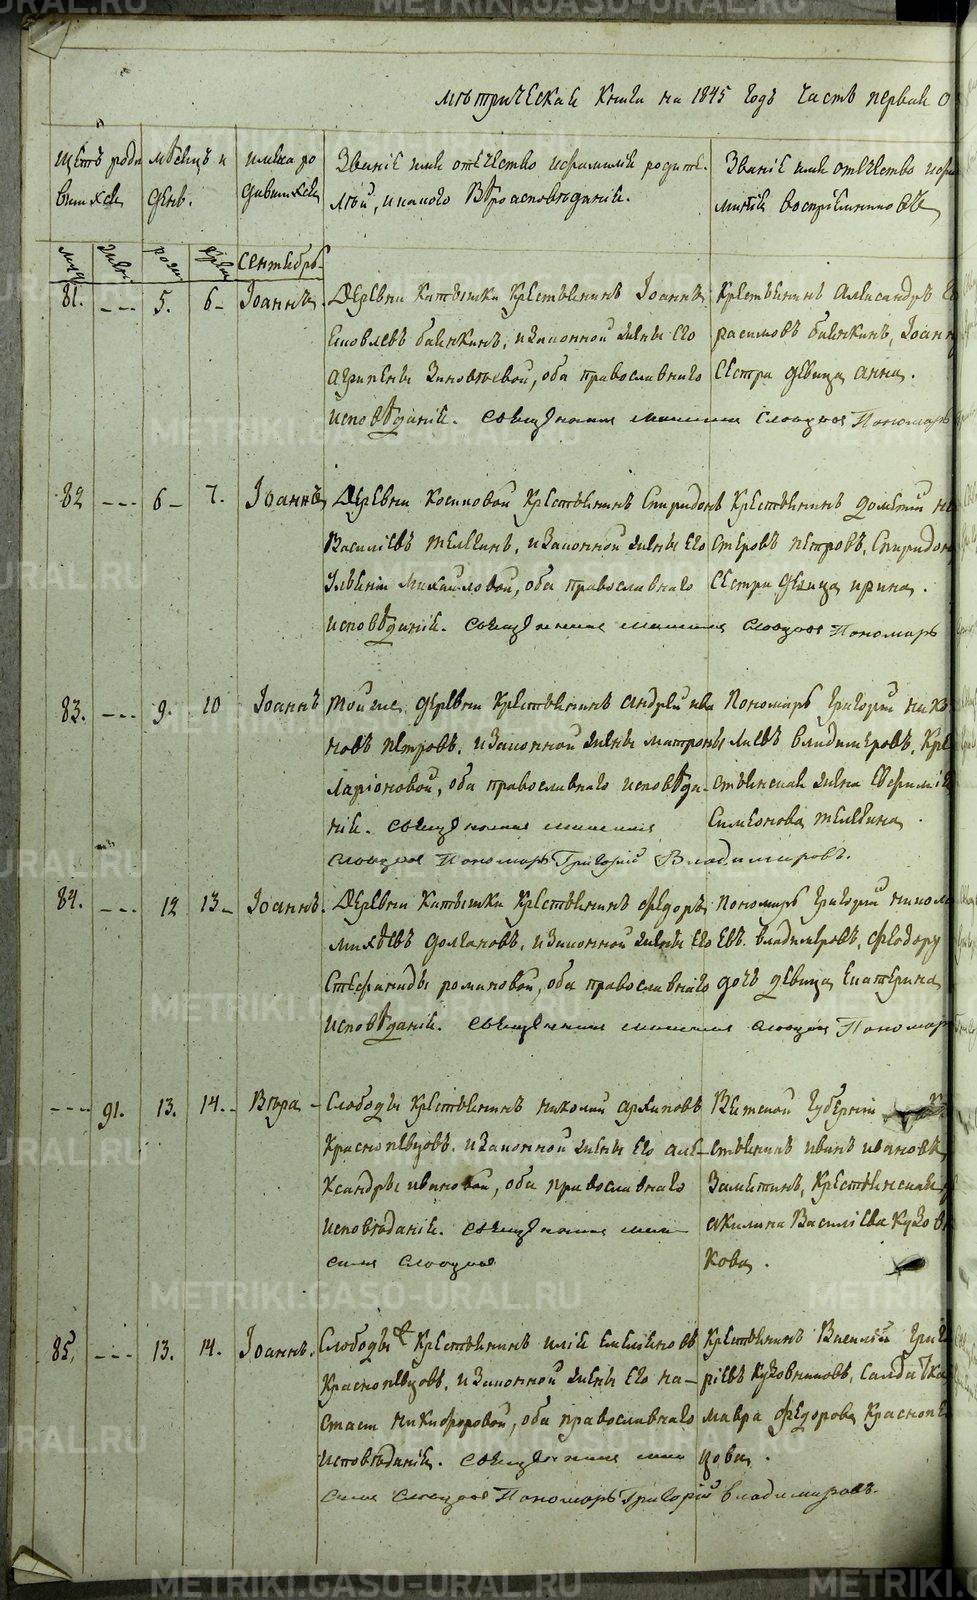 Метрическая Книга на 1845 годъ Часть первая о
Щетъ роди вшихся
Мѣсяцъ и день.
Имена родившихся
Званіе имя отчество и фамилія родите-
лей, и какого Вѣроисповѣданія.
Званіе имя отчество и фамилія воспріемниковъ
муж. женс. рожд. крещ. Сентябрь
81. --- 5. 6- Іоаннъ.
Деревни Катышки Крестьянинъ Іоаннъ
Яковлевъ баянкинъ, и законной жены его
Агрипены Зиновьевой, оба православнаго
исповѣданія. Священникъ Слопцовъ Пономарь
Крестьянинъ Александръ Ге
расимовъ баянкинъ, Іоанна
Сестра девица Анна.
82 --- 6- 7. Іоаннъ
Деревни Косиковой Крестьянинъ Спиридонъ
Василіевъ Телегинъ, и законной жены его
Ульяніи Михайловой, оба православнаго
исповѣданія. Священникъ Слопцовъ Пономарь
Крестьянинъ Дометій не
стеровъ петровъ, Спиридона
Сестра девица ирина.
83. --- 9. 10 Іоаннъ
Той же деревни Крестьянинъ Андрей ива
новъ петровъ, и законной жены матроны
Ларіоновой, оба православнаго исповѣда-
нія. Священникъ
Слопцовъ Пономарь Григорій Владимировъ.
Пономарь Григорій нико
лаевъ владимировъ, Кре
стьянская жена Евфимія
Симеонова Телегина.
84. --- 12 13- Іоаннъ.
Деревни Катышки Крестьянинъ Федоръ
Михѣевъ долгановъ, и законной жены его
Стефаниды романовой, оба православнаго
исповѣданія. Священникъ Слопцовъ Пономарь
Пономарь Григорій никола
евъ владимировъ, Федора
дочь девица Екатерина
--- 91. 13. 14.- Вѣра -
Слободы Крестьянинъ николай архиповъ
Краснопевцовъ. и законной жены его Але-
ксандры ивановой, оба православнаго
исповѣданія. Священникъ
Слопцовъ
Вятской Губерніи
стьянинъ иванъ ивановъ
Замятинъ, Крестьянская
акилина Василіева Куков
кова.
85. --- 13. 14. Іоаннъ.
Слободы Крестьянинъ илія емеліяновъ
Краснопевцовъ, и законной жены его на-
стасіи никифоровой, оба православнаго
исповѣданія. Священникъ
Слопцовъ Пономарь Григорій владимировъ.
Крестьянинъ Василій Григо
ріевъ Куковниковъ, Салдатка
мавра Федорова Краснопе
цова.
METRIKI.GASO-URAL.RU